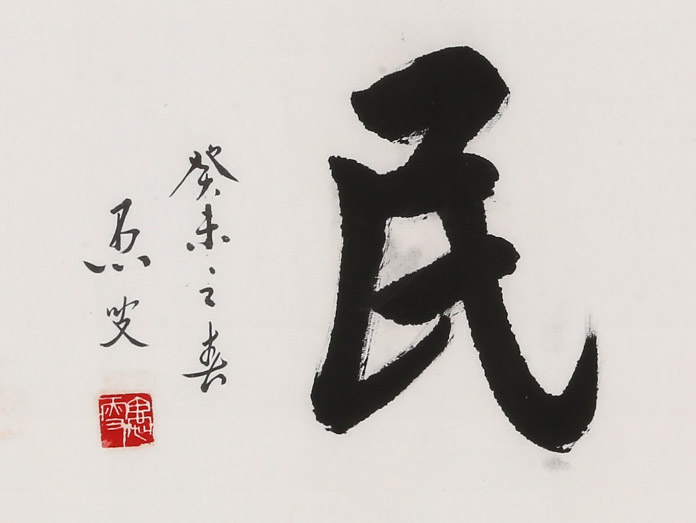 民
癸未之春
叟